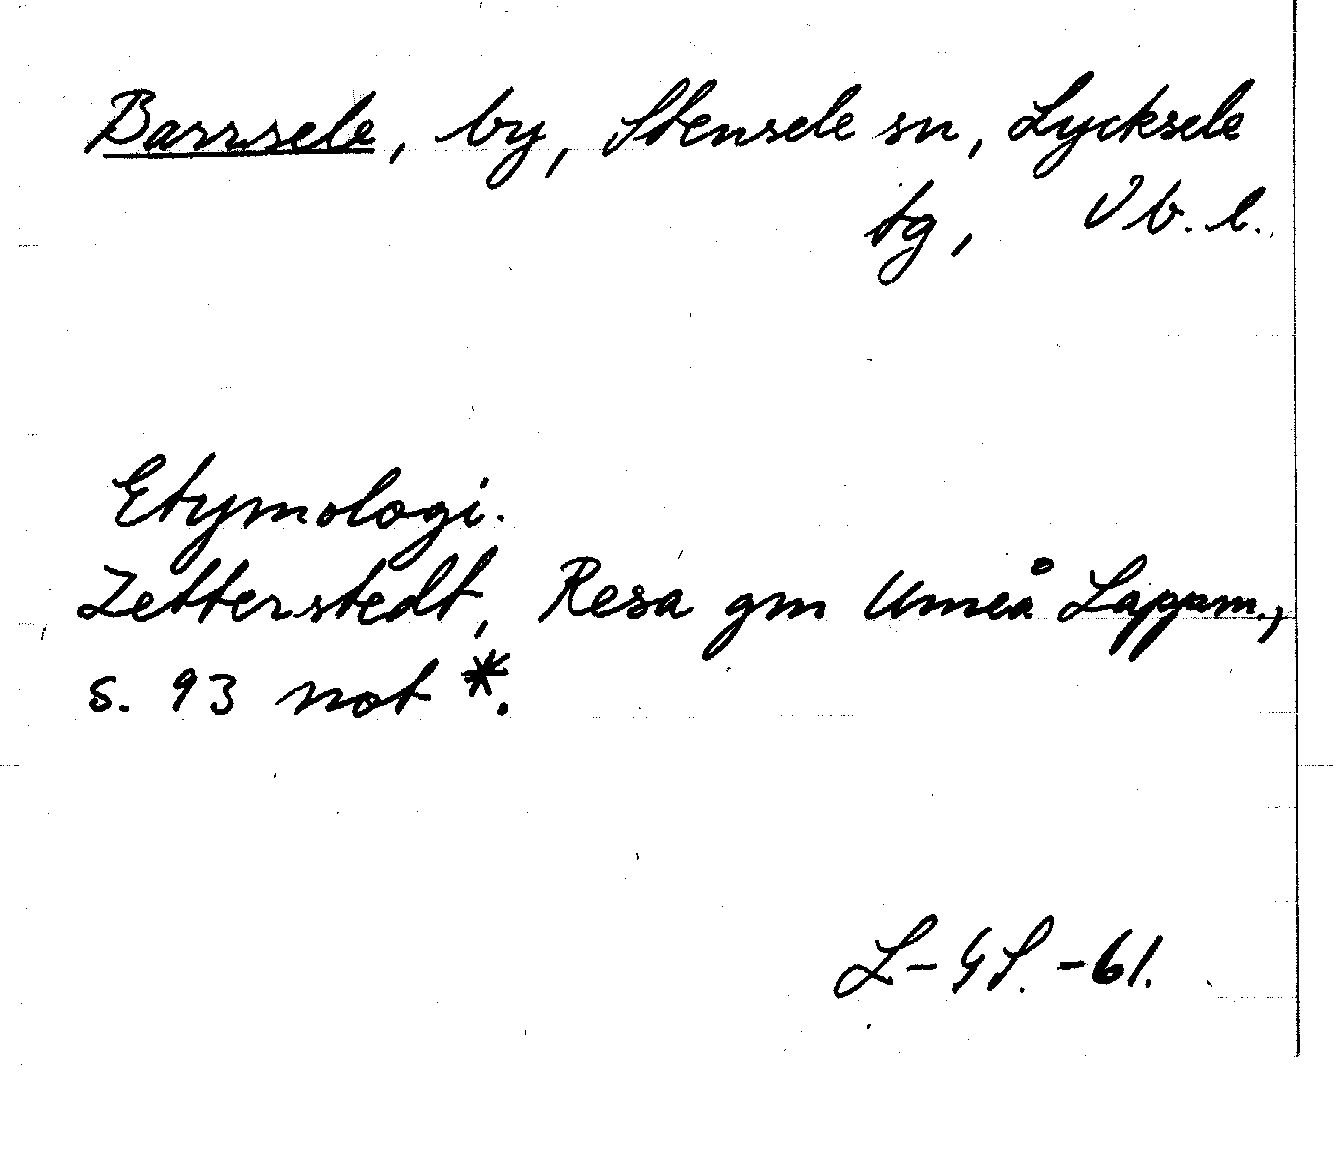 Barrsele, by, Stensele sn, Lycksele
tg, Vb. l.
Etymologi.
Zetterstedt, Resa gm Umeå Lappm.,
s. 93 not *.
L-GS. -61.